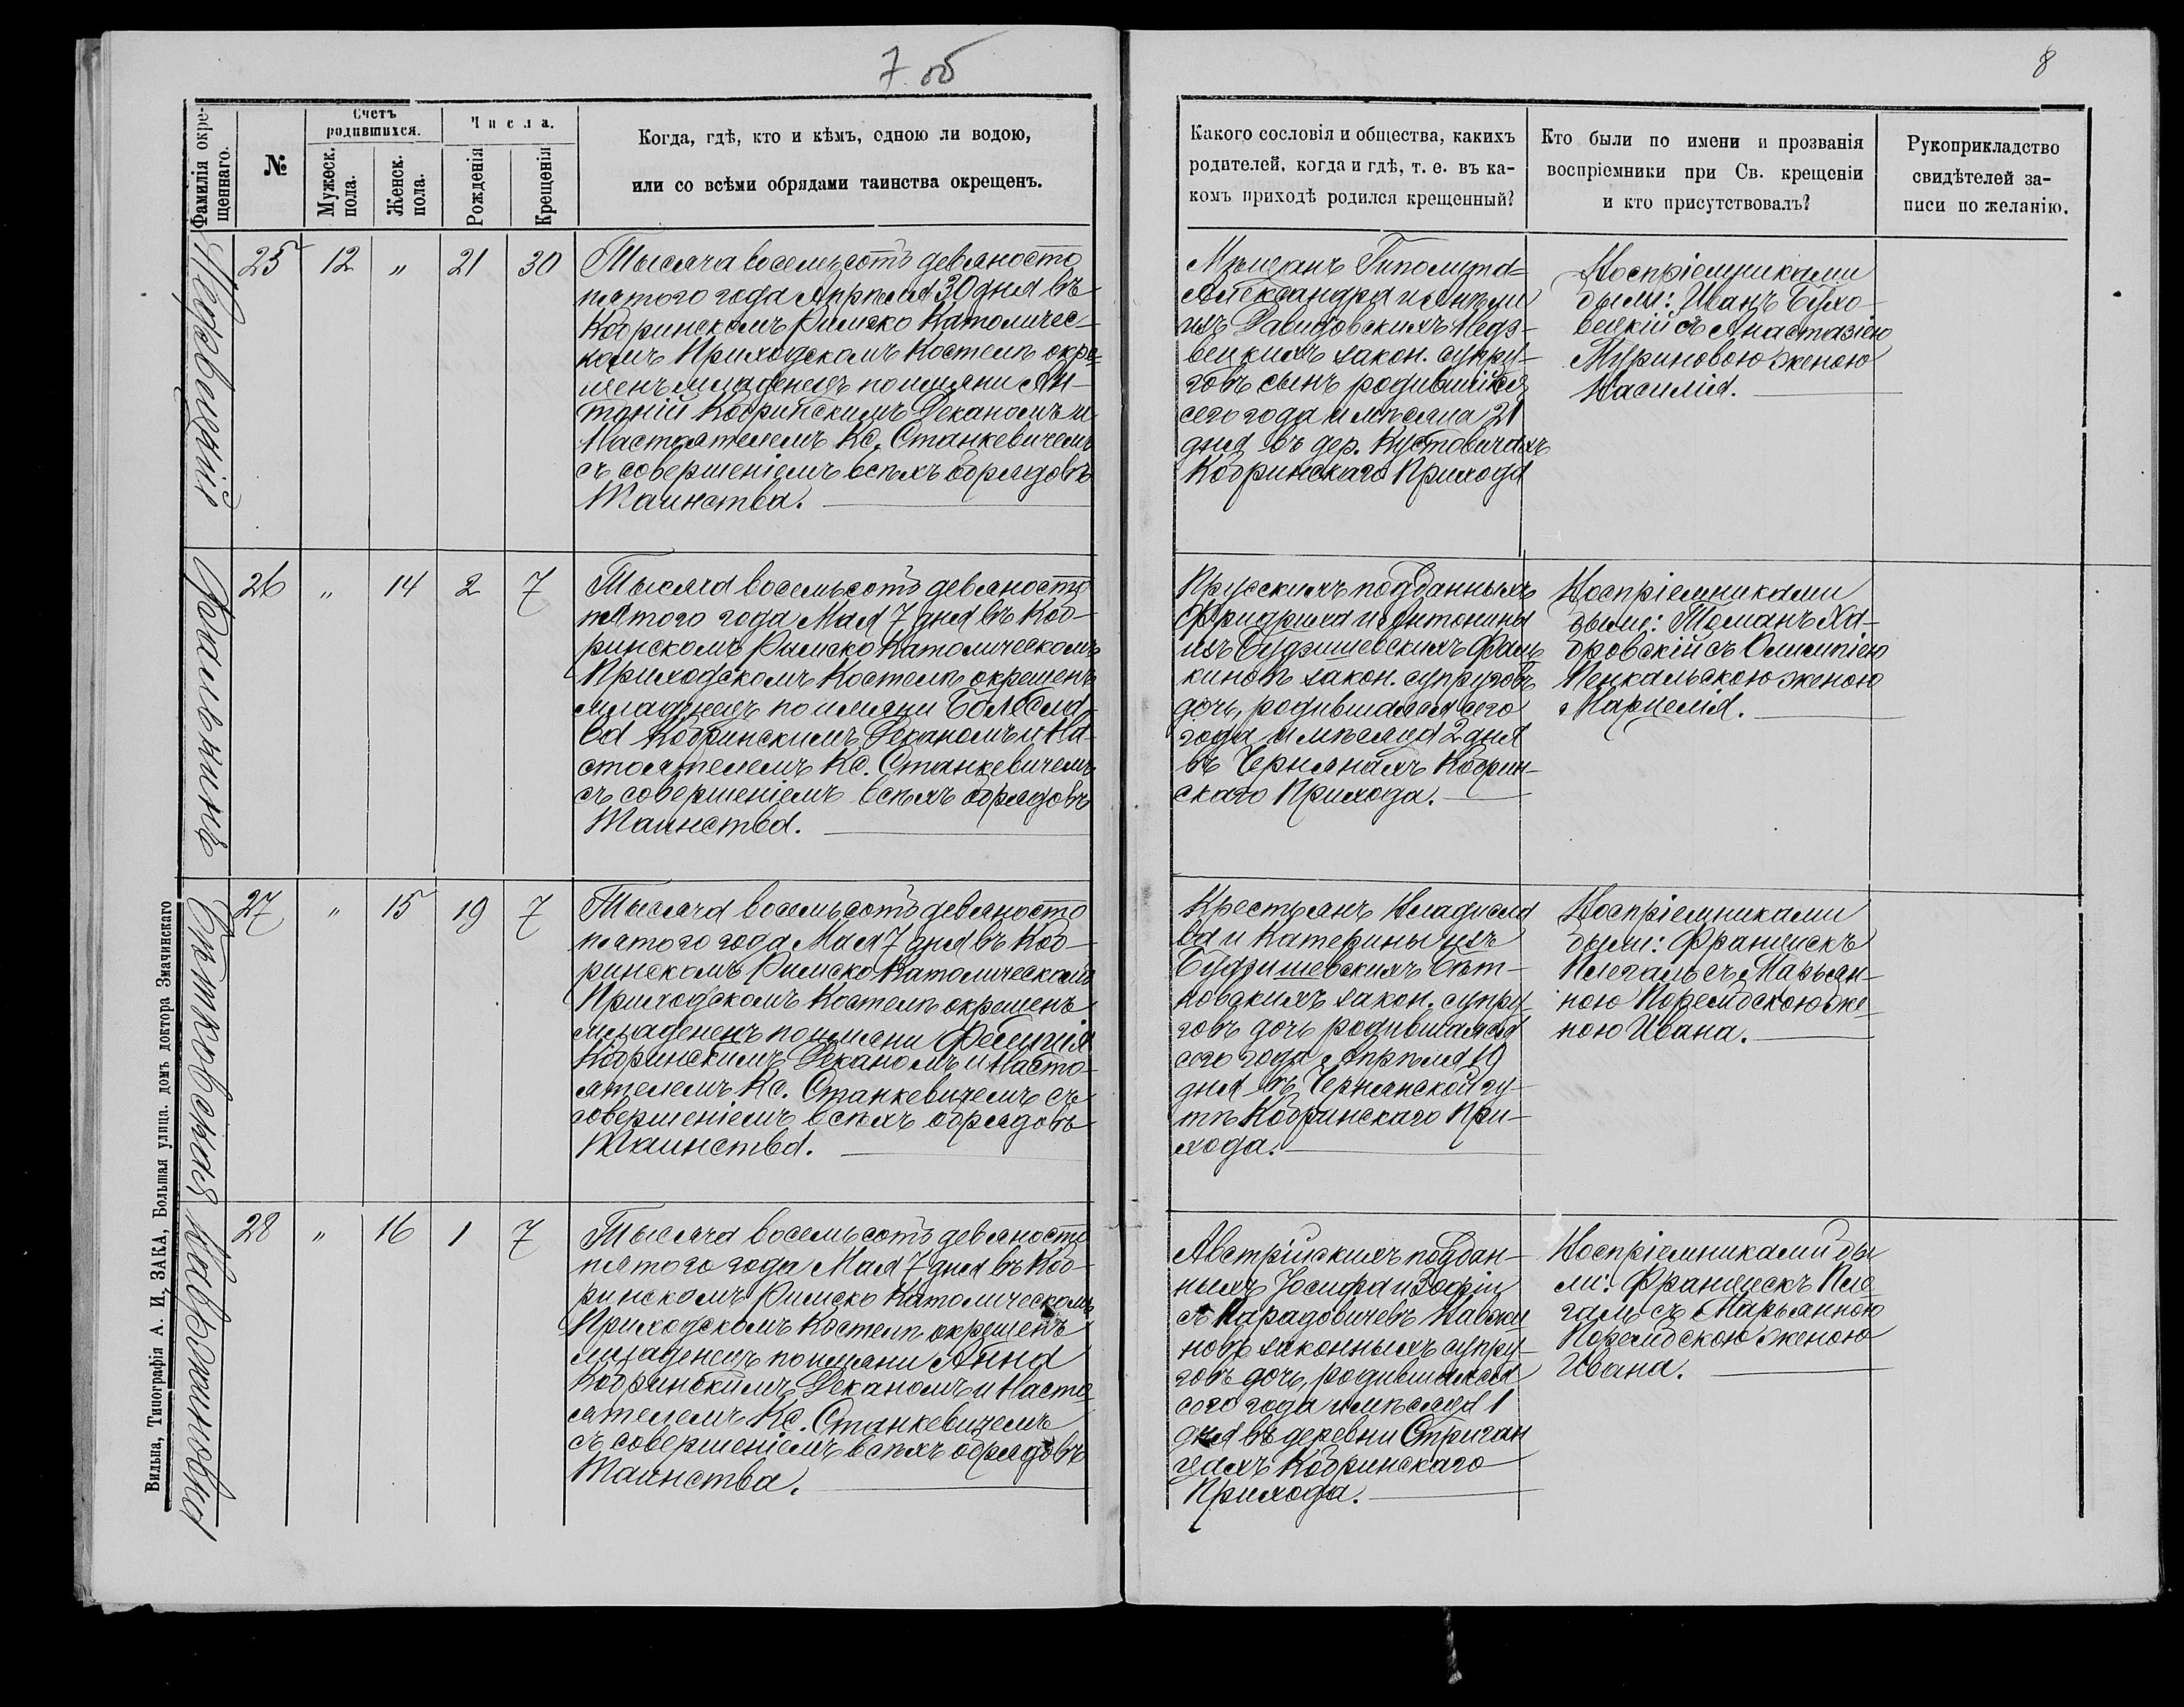 7 об
8
Фамилія окре-
щеннаго.
№
Счетъ
родившихся.
Мужеск.
пола.
Женск.
пола.
Числа.
Рожденія
Крещенія
Когда, гдѣ, кто и кѣмъ, одною ли водою,
или со всѣми обрядами таинства окрещенъ.
Какого сословія и общества, какихъ
родителей, когда и гдѣ, т. е. въ ка-
комъ приходѣ родился крещенный?
Кто были по имени и прозванія
воспріемники при Св. крещеніи
и кто присутствовалъ?
Рукоприкладство
свидѣтелей за-
писи по желанію.
Недзвецкій
25 12 „ 21 30
Тысяча восемьсотъ девяносто
пятого года Апрѣля 30 дня въ
Кобринскомъ Римско Католичес-
комъ Приходскомъ Костелѣ окре-
щенъ младенецъ по имяни Ан-
тоній Кобринскимъ Деканомъ и
Настоятелемъ Кс. Станкевичемъ
съ совершеніемъ всѣхъ обрядовъ
Таинства.
Мѣщанъ Гиполита-
Александра и Анели
изъ Давидовскихъ Недз-
вецкихъ закон. супру-
говъ сынъ родившійся
сего года и мѣсяца 21
дня въ дер. Кустовичахъ
Кобринскаго Прихода
Воспріемниками
были: Иванъ Бухо-
вецкій съ Анастазіею
Муриновою женою
Василія.
Фалькинъ
26 „ 14 2 7
Тысяча восемьсотъ девяносто
пятого года Мая 7 дня въ Коб-
ринскомъ Римско Католическомъ
Приходскомъ Костелѣ окрещенъ
младенецъ по имяни Болесла-
ва Кобринскимъ Деканомъ и На-
стоятелемъ Кс. Станкевичемъ
съ совершеніемъ всѣхъ обрядовъ
Таинства.
Прусскихъ подданныхъ
Фридриха и Антонины
изъ Будзишевскихъ Фаль
киновъ закон. супруговъ
дочь, родившаяся сего
года и мѣсяца 2 дня
въ Чернянахъ Кобрин-
скаго Прихода.
Воспріемниками
были: Томанъ Ха-
бровскій съ Олимпіею
Пенкальскою женою
Марцелія.
Бѣтковская
27 „ 15 19 7
Тысяча восемьсотъ девяносто
пятого года Мая 7 дня въ Коб-
ринскомъ Римско Католическомъ
Приходскомъ Костелѣ окрещенъ
младенецъ по имяни Фелиція
Кобринскимъ Деканомъ и Насто-
ятелемъ Кс. Станкевичемъ съ
совершеніемъ всѣхъ обрядовъ
Таинства.
Крестьянъ Владисла
ва и Катерины изъ
Будзишевскихъ Бѣт-
ковскихъ закон. супру-
говъ дочь родившаяся
сего года Апрѣля 19
дня въ Чернянской гу-
тѣ Кобринскаго При-
хода.
Воспріемниками
были: Францискъ
съ Марьян-
ною же
ною Ивана.
28 „ 16 1 7
Тысяча восемьсотъ девяносто
пятого года Мая 7 дня въ Коб-
ринскомъ Римско Католическомъ
Приходскомъ Костелѣ окрещенъ
младенецъ по имяни Анна
Кобринскимъ Деканомъ и Насто
ятелемъ Кс. Станкевичемъ
съ совершеніемъ всѣхъ обрядовъ
Таинства.
Австрійскихъ поддан-
ныхъ Іосифа и Зофіи
новъ законныхъ супру-
говъ дочь, родившаяся
сего года и мѣсяца 1
дня въ деревни Стриган
цахъ Кобринскаго
Прихода.
Воспріемниками бы
ли: Францискъ
съ Марьянною
женою
Ивана.
Вильна, Типографія А. И. ЗАКА, Большая улица. домъ доктора Змачинскаго